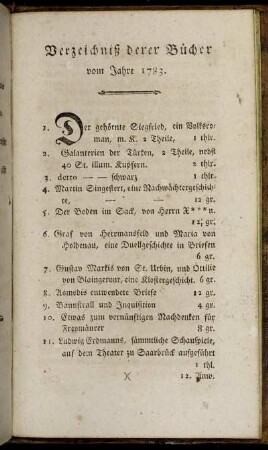 Verzeichniß derer Bücher
vom Jahre 1783.
1. Der gehörnte Siegfried, ein Volksro-
man, m. K. 2 Theile, 1 thlr.
2. Galanterien der Türken, 2 Theile, nebst
40 St. illum. Kupfern. 2 thlr.
3. detto — — schwarz 1 thlr.
4. Martin Singestert, eine Nachtwächtergeschich-
te, — — 12 gr.
5. Der Boden im Sack, von Herrn X***n.
12 gr.
6. Graf von Herrmansfeld und Maria von
Holdenau, eine Duellgeschichte in Briefen
6 gr.
7. Gustav Markis von St. Urbin, und Ottilie
von Blaingerour, eine Klostergeschicht. 6 gr.
8. Asmodis entwendete Briefe 12 gr.
9. Bannstrall und Inquisition 4 gr.
10. Etwas zum vernünftigen Nachdenken für
Freymäurer 8 gr.
11. Ludwig Erdmanns, sämmtliche Schauspiele,
auf dem Theater zu Saarbrück aufgeführt
1 thl.
12.